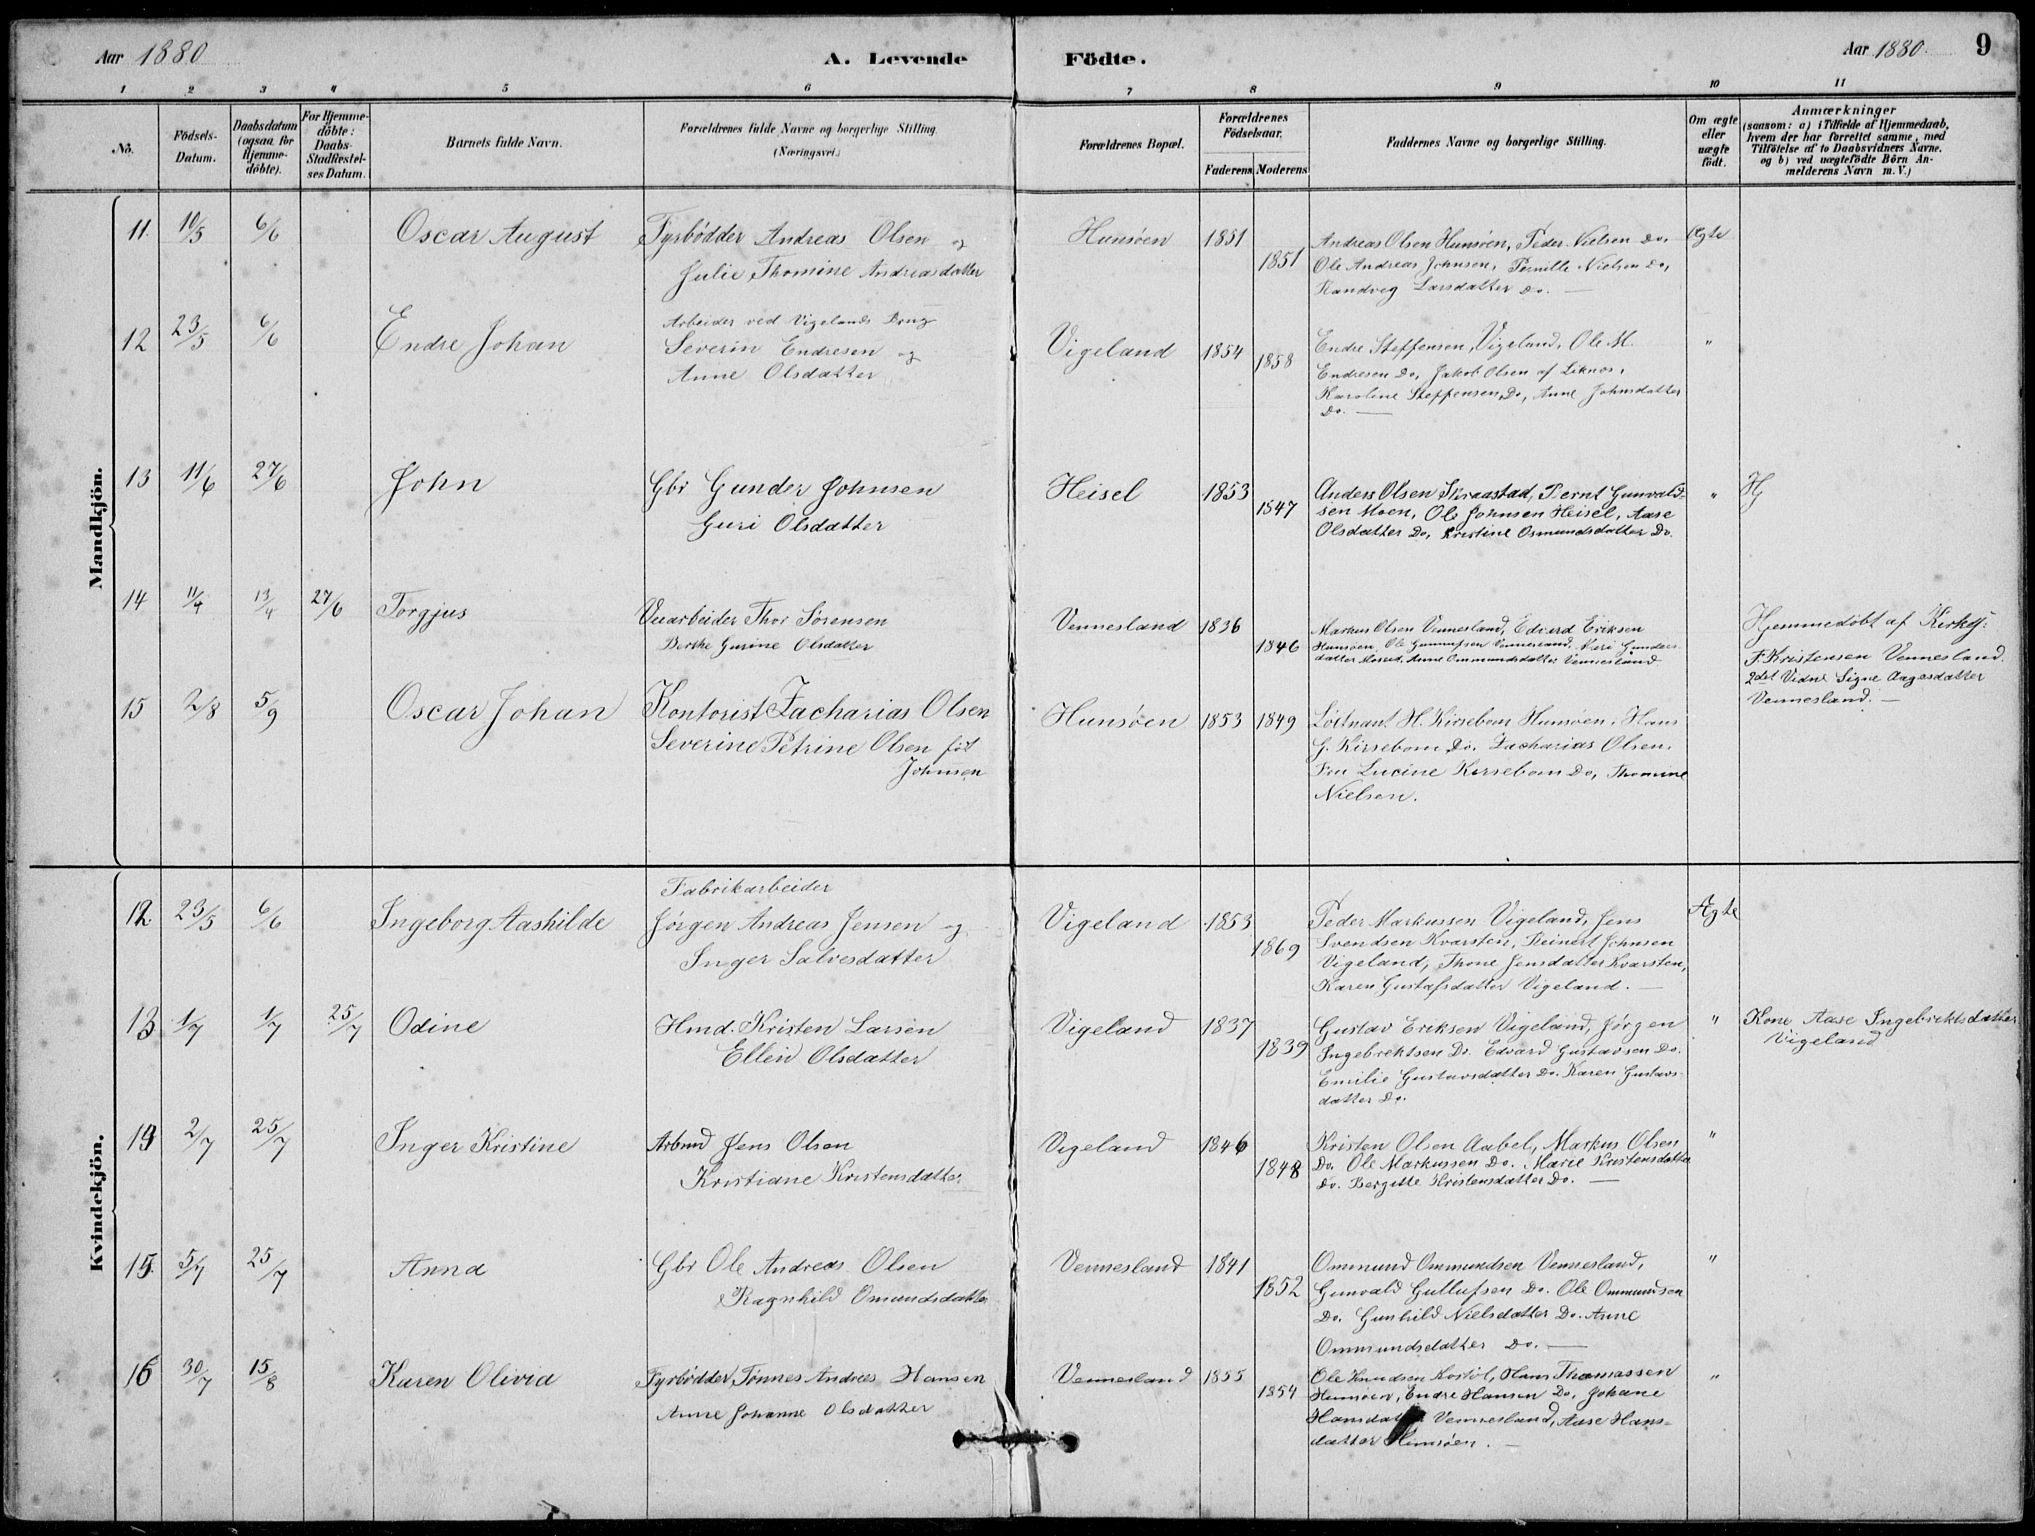 Aar 1880
A. Levende Födte.
Aar 1880.
9
1 2 3 4 5 6 7 8 9 10 11
No.
Födsels-
Datum.
Daabsdatum
(ogsaa for
Hjemme-
döbte).
For Hjemme-
döbte:
Daabs-
Stadfæstel-
ses Datum.
Barnets fulde Navn.
Forældrenes fulde Navne og borgerlige Stilling.
(Næringsvei.)
Forældrenes Bopæl.
Forældrenes
Födselsaar.
Faderens Moderens
Faddernes Navne og borgerlige Stilling.
Om ægte
eller
uægte
födt.
Anmærkninger
(saasom: a) i Tilfælde af Hjemmedaab,
hvem der har forrettet samme, med
Tilföielse af to Daabsvidners Navne.
og b) ved uægtefödte Börn An-
melderens Navn m. V.)
Mandkjön.
11. 10/5 6/6 Oscar August
Fyrbødder Andreas Olsen og
Julie Thomine Andreasdatter
Hunsøen 1851 1851
Andreas Olsen Hunsøen, Peder Nielsen Do.
Ole Andreas Johnsen, Pernille Nielsen Do,
Randveg Larsdatter Do. —
Ægte
12 23/5 6/6 Endre Johan
Arbeider ved Vigelands Brug
Severin Endresen og
Anne Olsdatter
Vigeland 1854 1858
Endre Steffensen, Vigeland, Ole M.
Endresen Do, Jakob Olsen af
Karoline Steffensen Do, Anne Johnsdatter
Do. —
"
13 11/6 27/6 John
Gbr Gunder Johnsen
Guri Olsdatter
Heisel 1853 1847
Anders Olsen Straastad, Bernt Gunvald-
sen Moen, Ole Johnsen Heisel, Aase
Olsdatter Do, Kristine Osmundsdatter Do.
"
Hj
14 11/4 13/4 27/6 Torgjus
Veiarbeider Thor Sørensen
Berthe Gurine Olsdatter
Vennesland 1836 1846
Markus Olsen Vennesland, Edvard Eriksen
Hunsøen, Ole Gunnufsen Vennesland, Siri Gunders-
datter Moseid, Anne Ommundsdatter Vennesland
Hjemmedøbt af Kirkesj:
F. Kristensen Vennesland.
2det Vidne Signe Aagesdatter
Vennesland. —
15 2/8 5/9 Oscar Johan
Kontorist Zacharias Olsen
Severine Petrine Olsen født
Johnsen
Hunsøen 1853 1849
Løitnant H. Kirsebom Hunsøen. Hans
G. Kirsebom Do. Zacharias Olsen.
Fru Lucine Kirsebom Do, Thomine
Nielsen.
Kvindekjön.
12. 23/5 6/6 Ingeborg Aashilde
Fabrikarbeider
Jørgen Andreas Jensen og
Inger Salvesdatter
Vigeland 1853 1869
Peder Markussen Vigeland, Jens
Svendsen Kvarsten, Reinert Johnsen
Vigeland, Thone Jensdatter Kvarsten,
Karen Gustafsdatter Vigeland. —
Ægte
13 1/7 1/7 25/7 Odine
Hmd. Kristen Larsen
Ellen Olsdatter
Vigeland 1837 1839
Gustav Eriksen Vigeland, Jørgen
Ingebrektsen Do. Edvard Gustavsen Do.
Emilie Gustavsdatter Do. Karen Gustavs-
datter Do.
"
Kone Aase Ingebrektsdatter
Vigeland
14 2/7 25/7 Inger Kristine
Arbmd Jens Olsen
Kristiane Kristensdatter
Vigeland 1846 1848
Kristen Olsen Aabel, Markus Olsen
Do. Ole Markussen Do. Marie Kristensdatter
Do. Bergitte Kristensdatter Do. —
"
15. 5/7 25/7 Anna
Gbr Ole Andreas Olsen
Ragnhild Omundsdatter
Vennesland 1841 1852
Ommund Ommundsen Vennesland,
Gunvald Gullufsen Do. Ole Ommundsen
Do. Gunhild Nielsdatter Do. Anne
Ommundsdatter Do. —
"
16 30/7 15/8 Karen Olivia
Fyrbødder Tønnes Andreas Hansen
Anne Johanne Olsdatter
Vennesland 1855 1854
Ole Knudsen Kostøl, Hans Thomassen
Hunsøen, Endre Hansen Do, Johane
Hansdatter Vennesland, Aase Hans-
datter Hunsøen. —
"